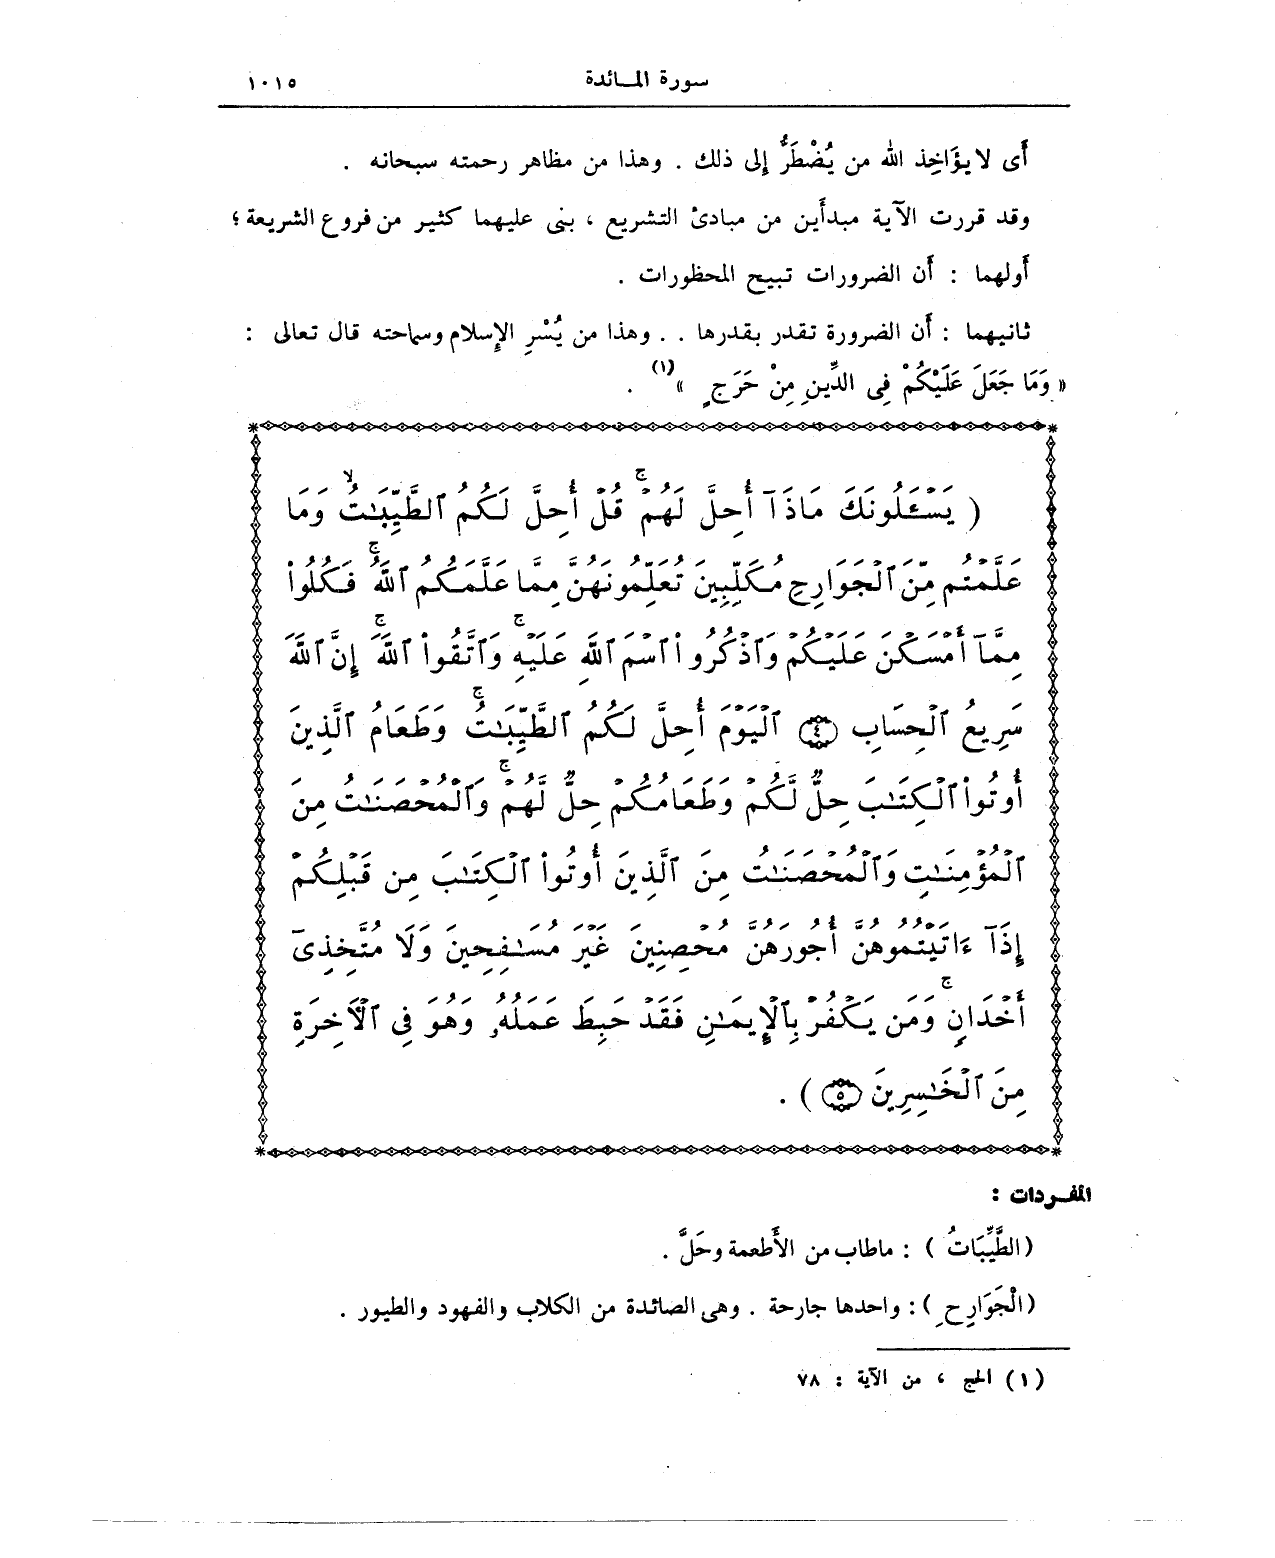 سورة المائدة ١٠١٥
أَى لا يؤَاخِذ الله من يُضْطَرُّ إلى ذلك . وهذا من مظاهر رحمته سبحانه .
وقد قررت الآية مبدأَين من مبادئ التشريع ، بنى عليهما كثير من فروع الشريعة ؛
أَولهما : أَن الضرورات تبيح المحظورات .
ثانيهما : أَن الضرورة تقدر بقدرها . . وهذا من يُسْرِ الإسلام وسماحته قال تعالى :
« وَمَا جَعَلَ عَلَيْكُمْ فِى الدِّينِ مِنْ حَرَجٍ »(١) .
( يَسْـَٔلُونَكَ مَاذَآ أُحِلَّ لَهُمْ ۖ قُلْ أُحِلَّ لَكُمُ ٱلطَّيِّبَـٰتُ ۙ وَمَا
عَلَّمْتُم مِّنَ ٱلْجَوَارِحِ مُكَلِّبِينَ تُعَلِّمُونَهُنَّ مِمَّا عَلَّمَكُمُ ٱللَّهُ ۚ فَكُلُوا۟
مِمَّآ أَمْسَكْنَ عَلَيْكُمْ وَٱذْكُرُوا۟ ٱسْمَ ٱللَّهِ عَلَيْهِ ۚ وَٱتَّقُوا۟ ٱللَّهَ ۚ إِنَّ ٱللَّهَ
سَرِيعُ ٱلْحِسَابِ ﴿٤﴾ ٱلْيَوْمَ أُحِلَّ لَكُمُ ٱلطَّيِّبَـٰتُ ۚ وَطَعَامُ ٱلَّذِينَ
أُوتُوا۟ ٱلْكِتَـٰبَ حِلٌّ لَّكُمْ وَطَعَامُكُمْ حِلٌّ لَّهُمْ ۚ وَٱلْمُحْصَنَـٰتُ مِنَ
ٱلْمُؤْمِنَـٰتِ وَٱلْمُحْصَنَـٰتُ مِنَ ٱلَّذِينَ أُوتُوا۟ ٱلْكِتَـٰبَ مِن قَبْلِكُمْ
إِذَآ ءَاتَيْتُمُوهُنَّ أُجُورَهُنَّ مُحْصِنِينَ غَيْرَ مُسَـٰفِحِينَ وَلَا مُتَّخِذِىٓ
أَخْدَانٍ ۚ وَمَن يَكْفُرْ بِٱلْإِيمَـٰنِ فَقَدْ حَبِطَ عَمَلُهُۥ وَهُوَ فِى ٱلْـَٔاخِرَةِ
مِنَ ٱلْخَـٰسِرِينَ ﴿٥﴾ ) .
المفـردات :
(الطَّيِّبَاتُ ) : ماطاب من الأَطعمة وحَلَّ .
(الْجَوَارِحِ ) : واحدها جارحة . وهى الصائدة من الكلاب والفهود والطيور .
(١) الحج ، من الآية : ٧٨